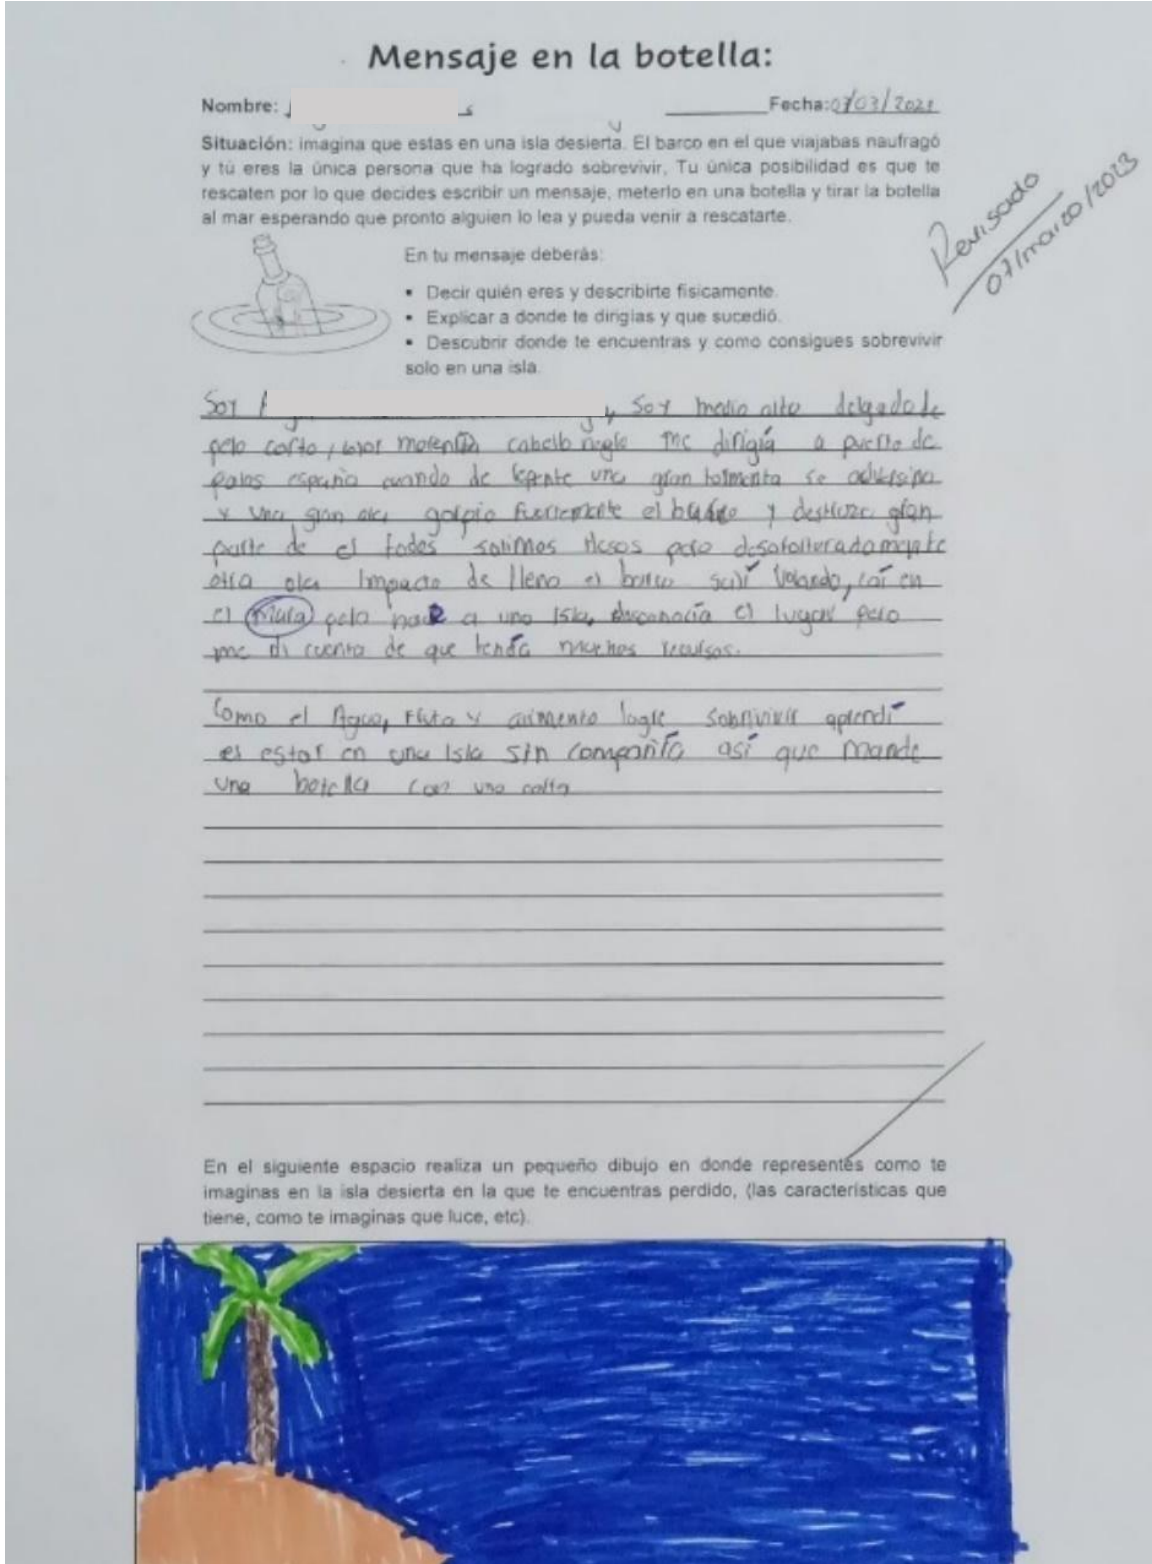 Mensaje en la botella:
Nombre: Fecha:07/03/2021
Situación: imagina que estas en una isla desierta. El barco en el que viajabas naufragó
y tú eres la única persona que ha logrado sobrevivir, Tu única posibilidad es que te
rescaten por lo que decides escribir un mensaje, meterlo en una botella y tirar la botella
al mar esperando que pronto alguien lo lea y pueda venir a rescatarte.
Revisado
07/marzo/2023
En tu mensaje deberás:
▪ Decir quién eres y describirte físicamente.
▪ Explicar a donde te dirigías y que sucedió.
▪ Descubrir donde te encuentras y como consigues sobrevivir
solo en una isla.
Soy , Soy medio alto delgado de
pelo corto, cabello me dirigía a puerto de
palos españa cuando de una gran tormenta se
y una gran ola golpio fuertemente el y gran
parte de el todos salimos pero
otra ola impacto de lleno el barco salí volando, caí en
el pelo a una Isla, desconocía el lugar pero
me di cuenta de que tenía muchos recursos.
Como el Agua, Fruta y logre aprendí
es estar en una Isla sin compañía así que mande
una botella con una carta
En el siguiente espacio realiza un pequeño dibujo en donde representes como te
imaginas en la isla desierta en la que te encuentras perdido, (las características que
tiene, como te imaginas que luce, etc).